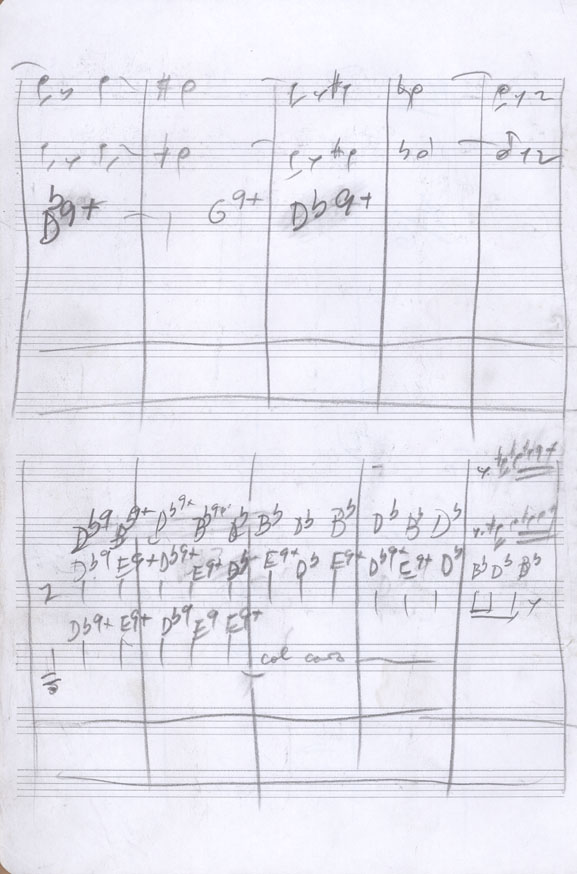 Db9+ G9+ Db9+
Db9 B9+ Db9+ Bb9+ Bb Bb Db Bb Db Bb Db
Db9 E9+ Db9+ E9+ Db E9+ Db E9+ Db9+ E9+ Db Bb Db Bb
2
Db9+ E9+ Db9 E9 E9+